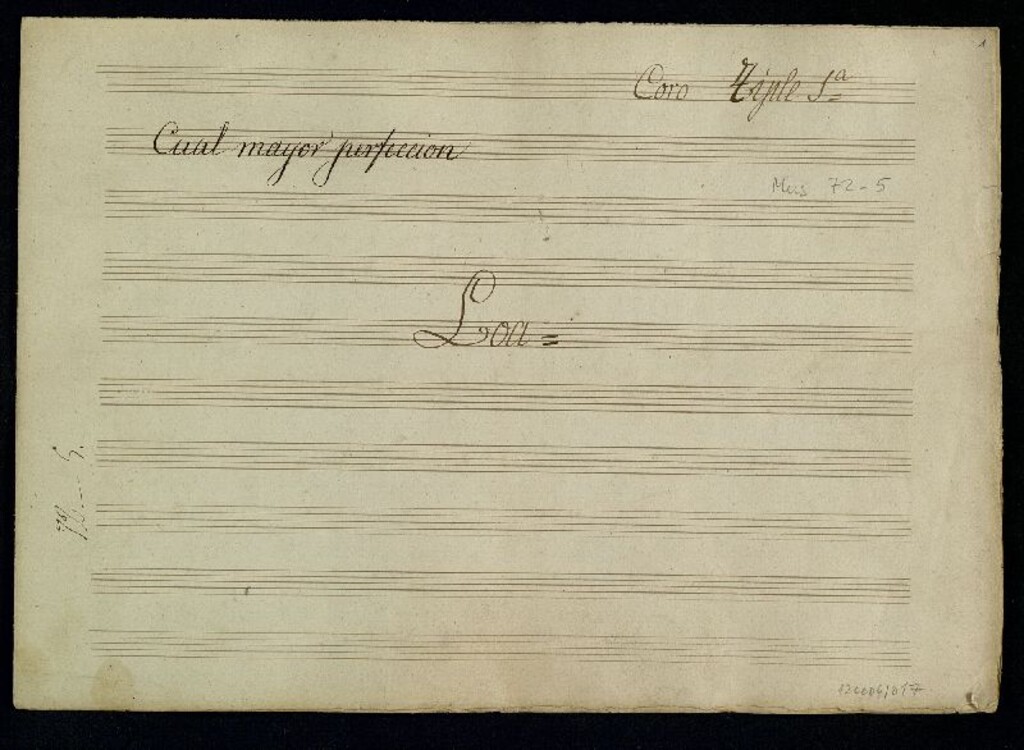 1
Coro Tiple 1ª
Cual mayor perfeccion
Mus 72-5
Loa =
72 - 5.